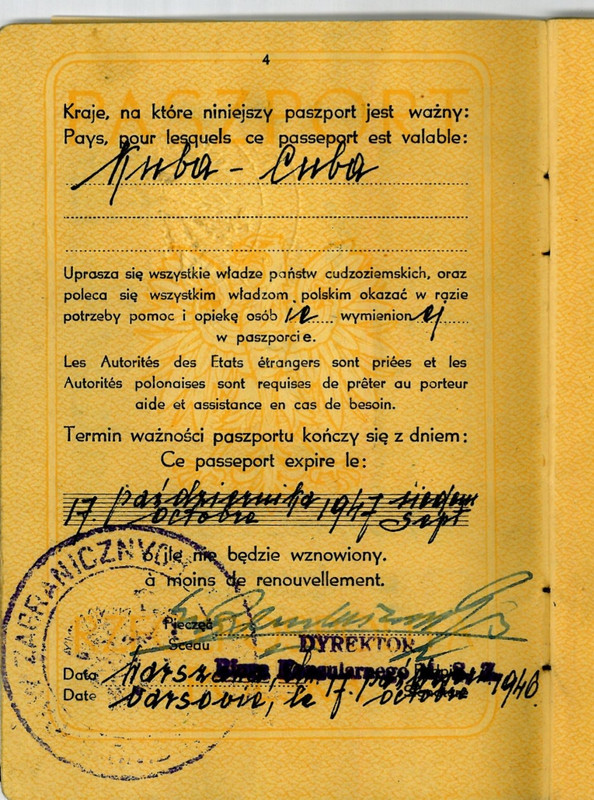 4
Kraje, na które niniejszy paszport jest ważny:
Pays, pour lesquels ce passeport est valable:
Kuba - Cuba
Uprasza się wszystkie władze państw cudzoziemskich, oraz
poleca się wszystkim władzom polskim okazać w razie
potrzeby pomoc i opiekę osóbie wymienionej
w paszporcie.
Les Autorités des Etats étrangers sont priées et les
Autorités polonaises sont requises de prêter au porteur
aide et assistance en cas de besoin.
Termin ważności paszportu kończy się z dniem:
Ce passeport expire le:
17. października 1947 siedem
octobre sept
o ile nie będzie wznowiony.
à moins de renouvellement.
Pieczęć
Sceau
DYREKTOR
Biura Konsularnego M. S. Z.
Data Warszawa, 17. października 1946.
Date Varsovie, le octobre
ZAGRANICZNYCH
PASZPORT